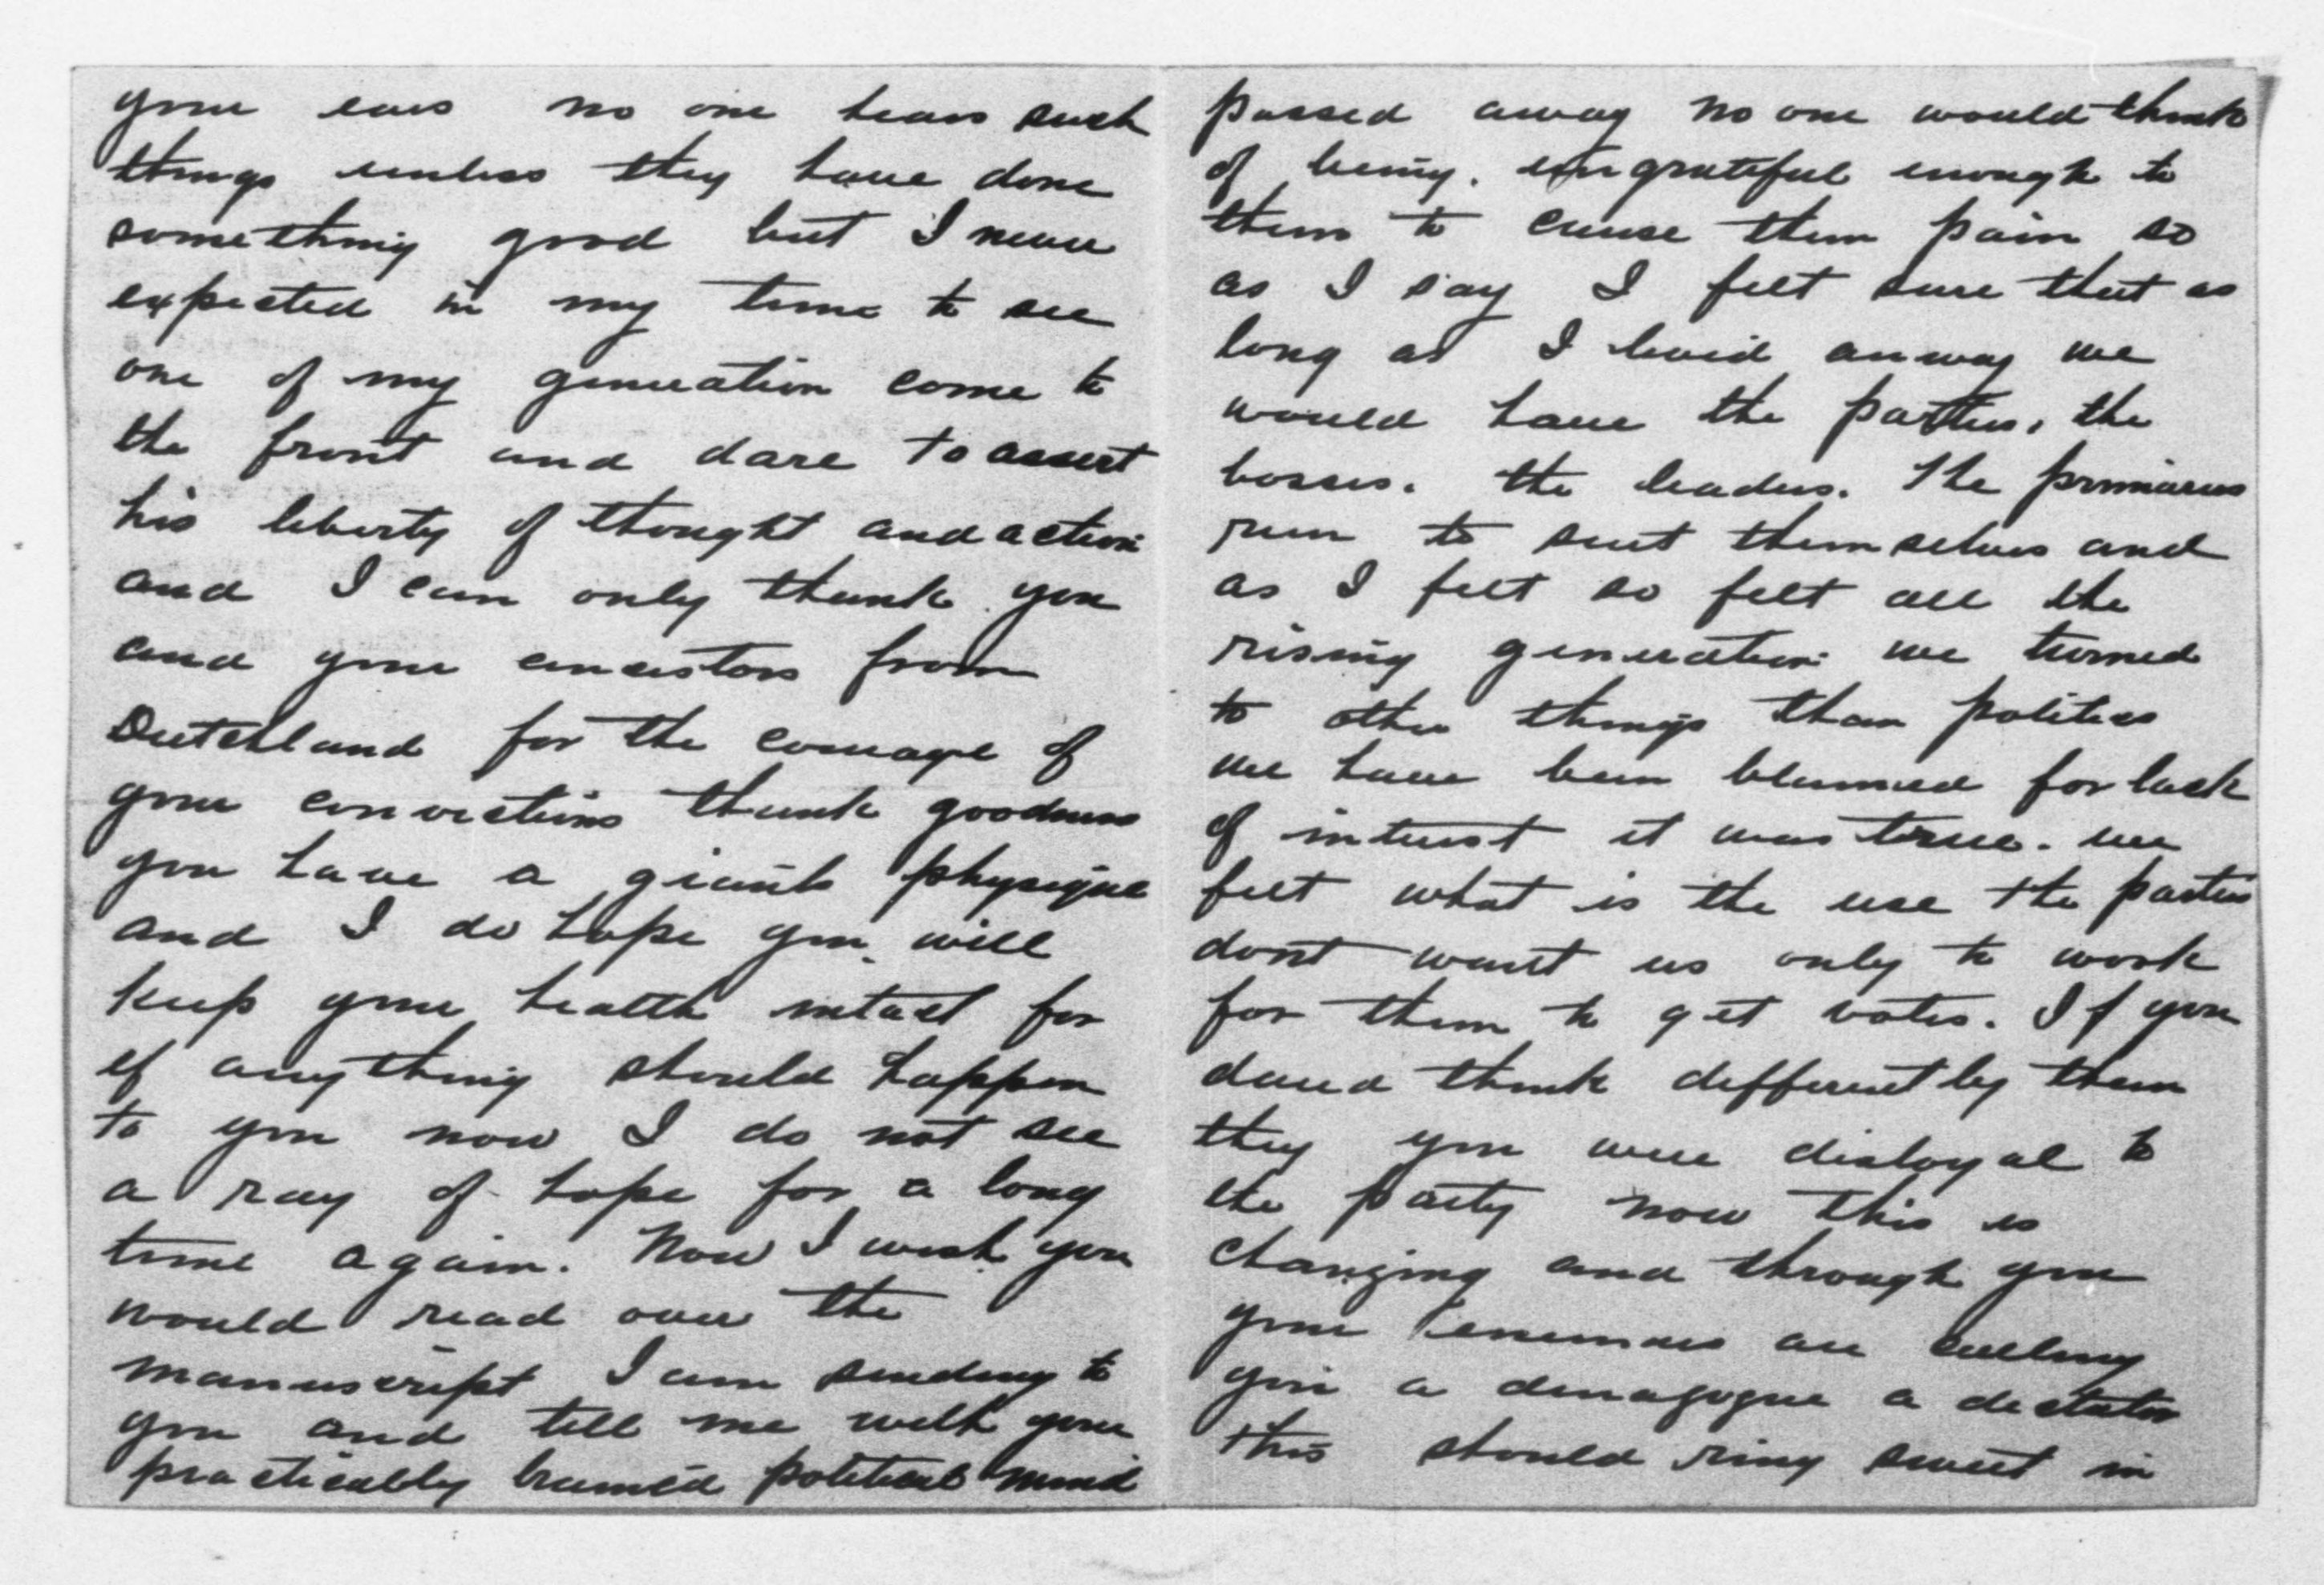 your ears no one hears such
things unless they have done
something good but I never
expected in my time to see
one of my generation come to
the front and dare to assert
his liberty of thought and action
and I can only thank you
and your ancestors from
Dutchland for the courage of
your convictions thank goodness
you have a giants physique
and I do hope you will
keep your health intact for
if anything should happen
to you now I do not see
a ray of hope for a long
time again. Now I wish you
would read over the
manuscript I am sending to
you and tell me with your
practically trained political mind
passed away no one would think
of being ungrateful enough to
them to cause them pain so
as I say I felt sure that as
long as I lived anway we
would have the parties, the
bosses. the leaders. The primaries
run to suit themselves and
as I felt so felt all the
rising generation we turned
to other things than politics
we have been blamed for lack
of interest it was true. we
felt what is the use the parties
dont want us only to work
for them to get votes. If you
dared think differently than
they you were disloyal to
the party now this is
changing and through you
your enemies are calling
you a demagogue a dictator
this should ring sweet in